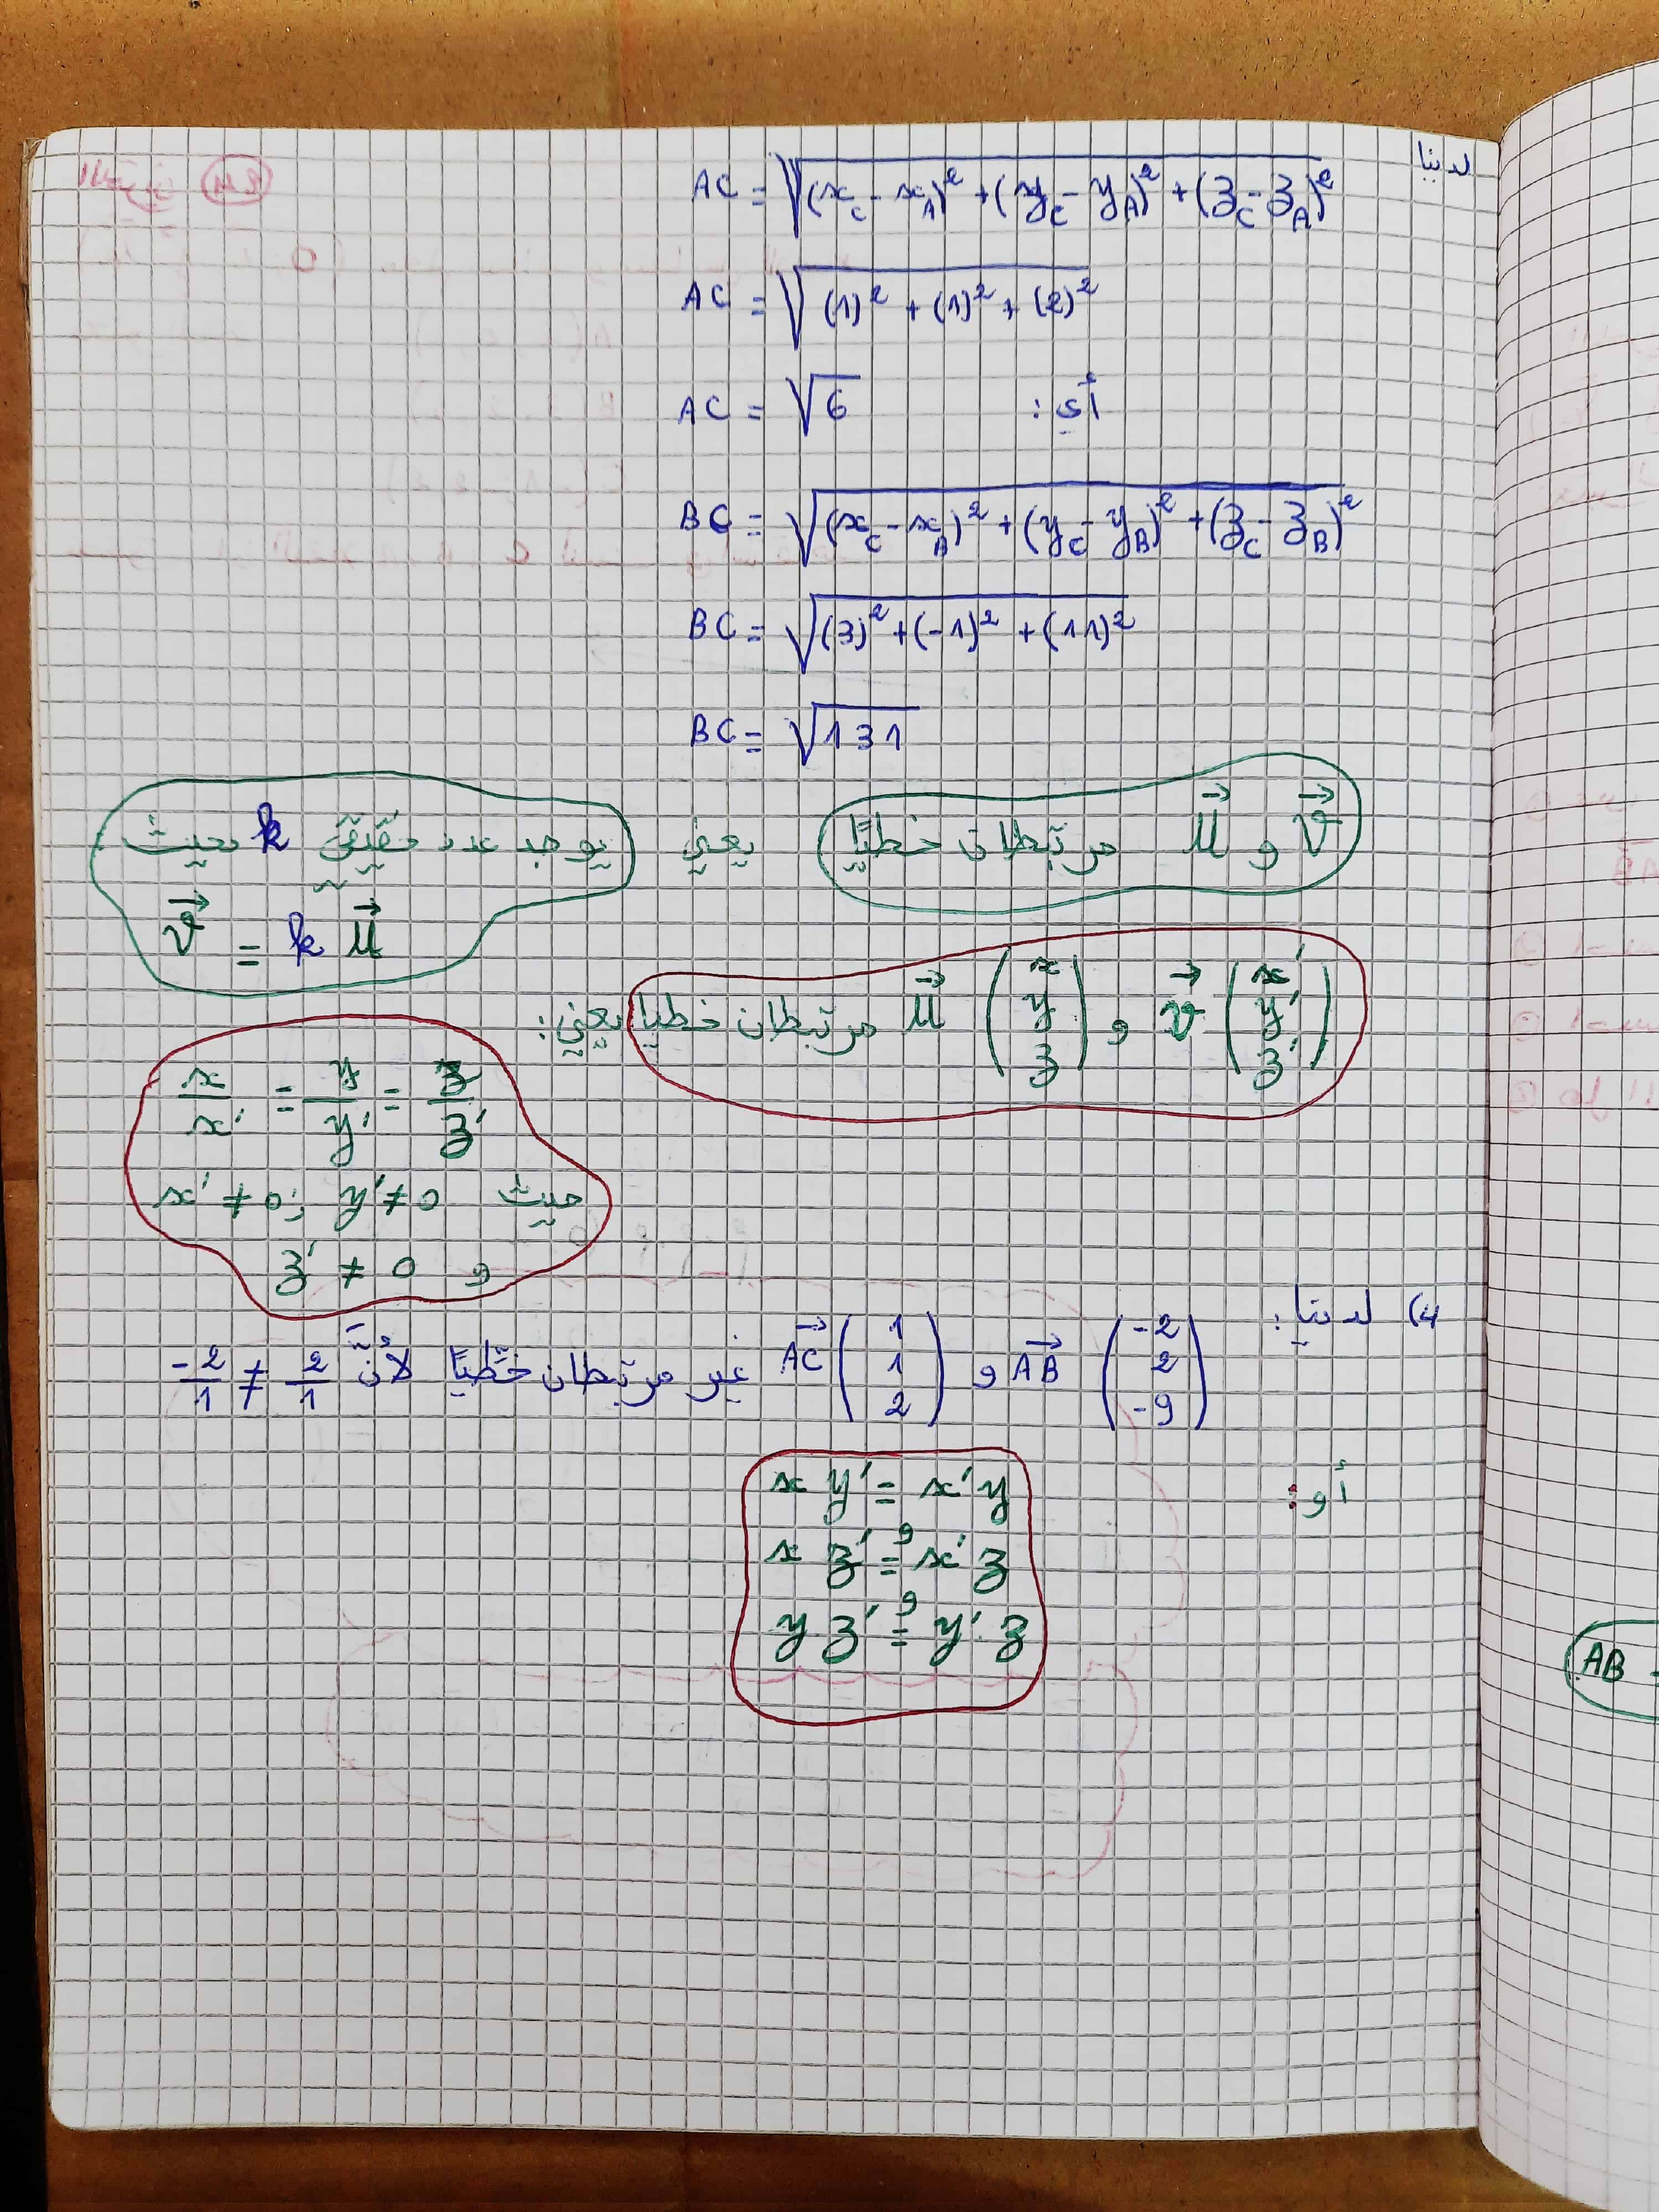 لدينا AC = √((x_C - x_A)² + (y_C - y_A)² + (z_C - z_A)²)
AC = √((1)² + (1)² + (2)²)
أي: AC = √6
BC = √((x_C - x_B)² + (y_C - y_B)² + (z_C - z_B)²)
BC = √((3)² + (-1)² + (11)²)
BC = √131
v⃗ و u⃗ مرتبطان خطيًا يعني يوجد عدد حقيقي k بحيث
v⃗ = k u⃗
v⃗ (x' y' z') و u⃗ (x y z) مرتبطان خطيا يعني:
x/x' = y/y' = z/z'
حيث x' ≠ 0 ; y' ≠ 0
و z' ≠ 0
4) لدينا: AB⃗ (-2 2 -9) و AC⃗ (1 1 2) غير مرتبطان خطّيًا لأنّ -2/1 ≠ 2/1
أو: x y' = x' y
و
x z' = x' z
و
y z' = y' z
AB